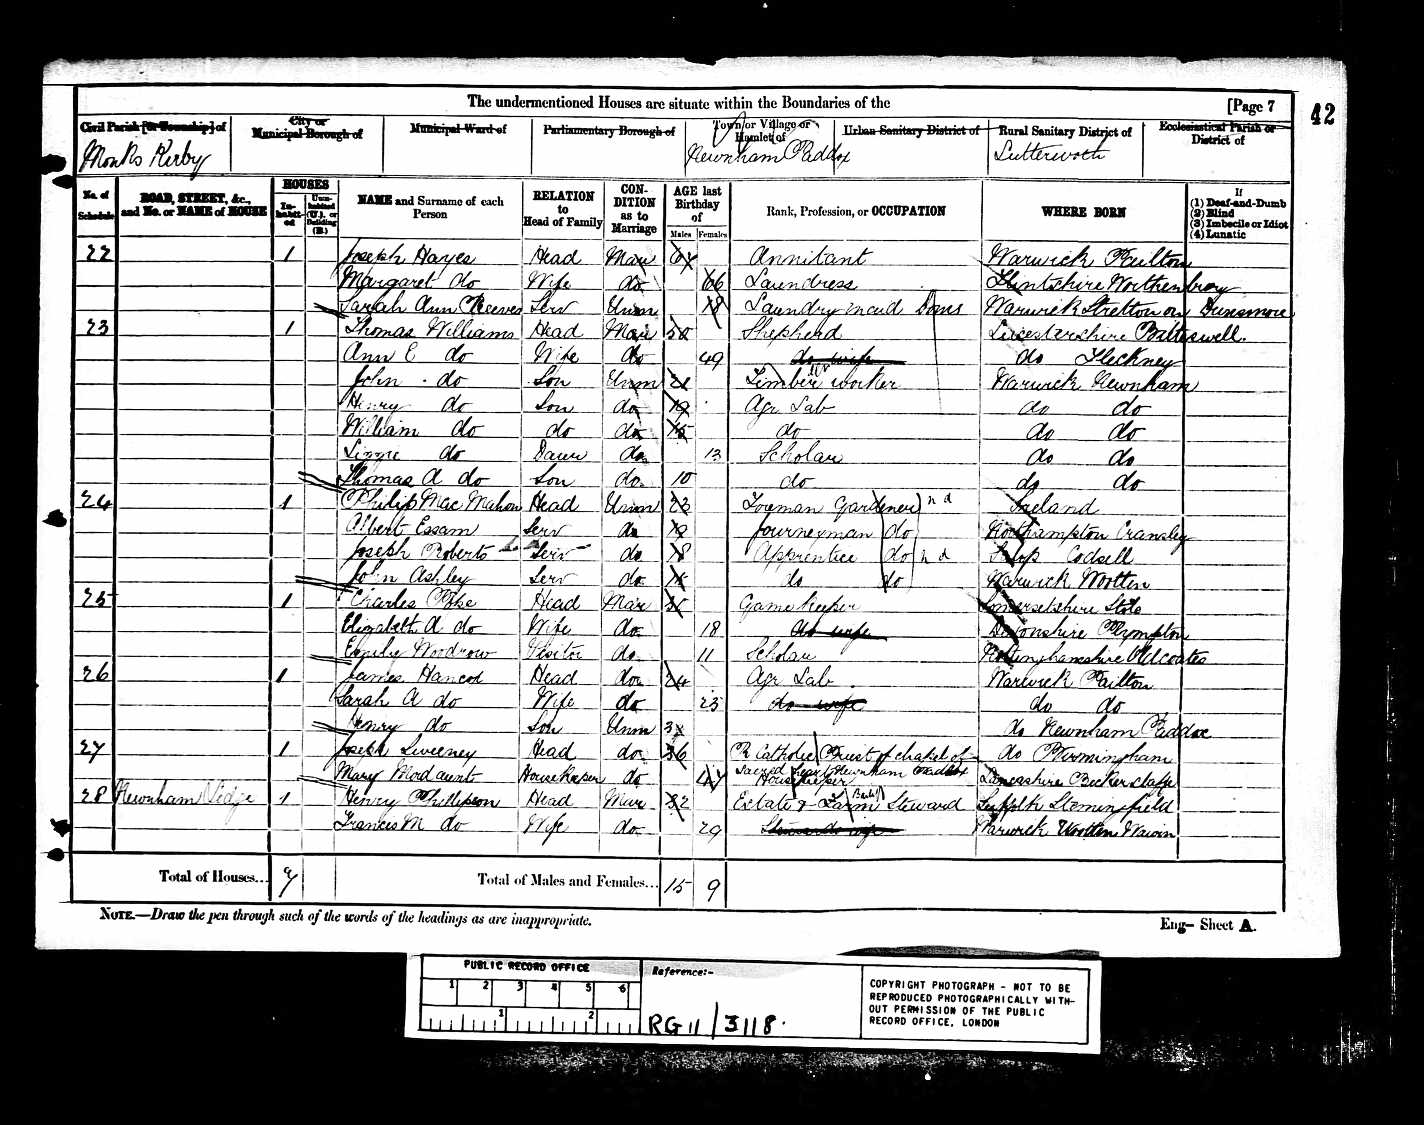 The undermentioned Houses are situate within the Boundaries of the [Page 7
42
Civil Parish [or Township] of City or Municipal Borough of Municipal Ward of Parliamentary Borough of Town or Village or Hamlet of Urban Sanitary District of Rural Sanitary District of Ecclesiastical Parish or District of
Monks Kirby Newnham Paddox Lutterworth
No. of Schedule ROAD, STREET, &c., and No. or NAME of HOUSE HOUSES Inhabited Uninhabited (U.), or Building (B.) NAME and Surname of each Person RELATION to Head of Family CONDITION as to Marriage AGE last Birthday of Males Females Rank, Profession, or OCCUPATION WHERE BORN If (1) Deaf-and-Dumb (2) Blind (3) Imbecile or Idiot (4) Lunatic
22 1 Joseph Hayes Head Mar 64 Annitant Warwick Pailton
Margaret do Wife do 66 Laundress Flintshire Worthenbury
Sarah Ann Reeves Serv Unm 18 Laundry maid Doms Warwick Stretton on Dunsmore
23 1 Thomas Williams Head Mar 50 Shepherd Leicestershire Bitteswell
Ann E do Wife do 49 do wife do Fleckney
John do Son Unm 21 Timber worker Warwick Newnham
Henry do Son do 19 Agr Lab do do
William do do do 15 do do do
Lizzie do Daur do 13 Scholar do do
Thomas A do Son do 10 do do do
24 1 Philip Mac Mahon Head Unm 23 Foreman Gardener nd Ireland
Albert Essam Serv do 19 Journeyman do Northampton Cransley
Joseph Roberts Serv do 18 Apprentice do nd Codsell
John Ashley Serv do 15 do do Warwick Wootten
25 1 Charles Head Mar Game Keeper Somersetshire
Elizabeth A do Wife do 18 do wife Devonshire Plympton
Emily Woodrow Visitor do 11 Scholar Nottinghamshire Oldcoates
26 1 James Hancox Head do 24 Agr Lab Warwick Pailton
Sarah A do Wife do 23 do wife do do
Henry do Son Unm 3 do Newnham Paddox
27 1 Joseph Sweeney Head do 36 R Catholic Priest of chapel of do Birmingham
Sacred Heart Newnham Paddox
Mary Mordaunt Housekeeper do 44 Housekeeper Lancashire Bickerstaffe
28 Newnham 1 Henry Phillipson Head Mar 32 Estate & Farm Steward Suffolk
Frances M do Wife do 29 Stewards wife Warwick Wootten Wawen
Total of Houses... 7 Total of Males and Females... 15 9
NOTE.—Draw the pen through such of the words of the headings as are inappropriate.
Eng— Sheet A.
PUBLIC RECORD OFFICE
1 2 3 4 5 6
1 2
Reference:-
RG 11 / 3118
COPYRIGHT PHOTOGRAPH - NOT TO BE
REPRODUCED PHOTOGRAPHICALLY WITH-
OUT PERMISSION OF THE PUBLIC
RECORD OFFICE, LONDON